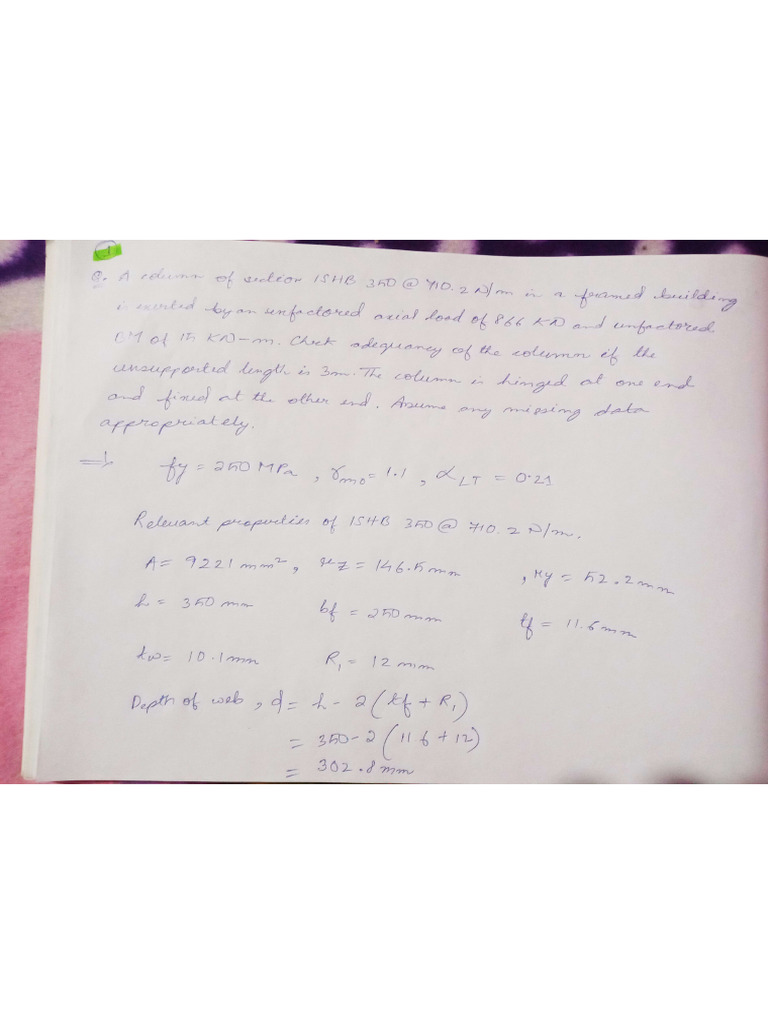 1
Q. A column of section ISHB 350 @ 710.2 N/m in a framed building
is exerted by an unfactored axial load of 866 KN and unfactored
BM of 15 KN-m. Check adequancy of the column if the
unsupported length is 3m. The column is hinged at one end
and fixed at the other end. Assume any missing data
appropriately.
⇒ fy = 250 MPa, γm0 = 1.1, αLT = 0.21
Relevant properties of ISHB 350 @ 710.2 N/m.
A = 9221 mm², rz = 146.5 mm, ry = 52.2 mm
h = 350 mm bf = 250 mm tf = 11.6 mm
tw = 10.1 mm R1 = 12 mm
Depth of web, d = h - 2(tf + R1)
= 350 - 2(11.6 + 12)
= 302.8 mm